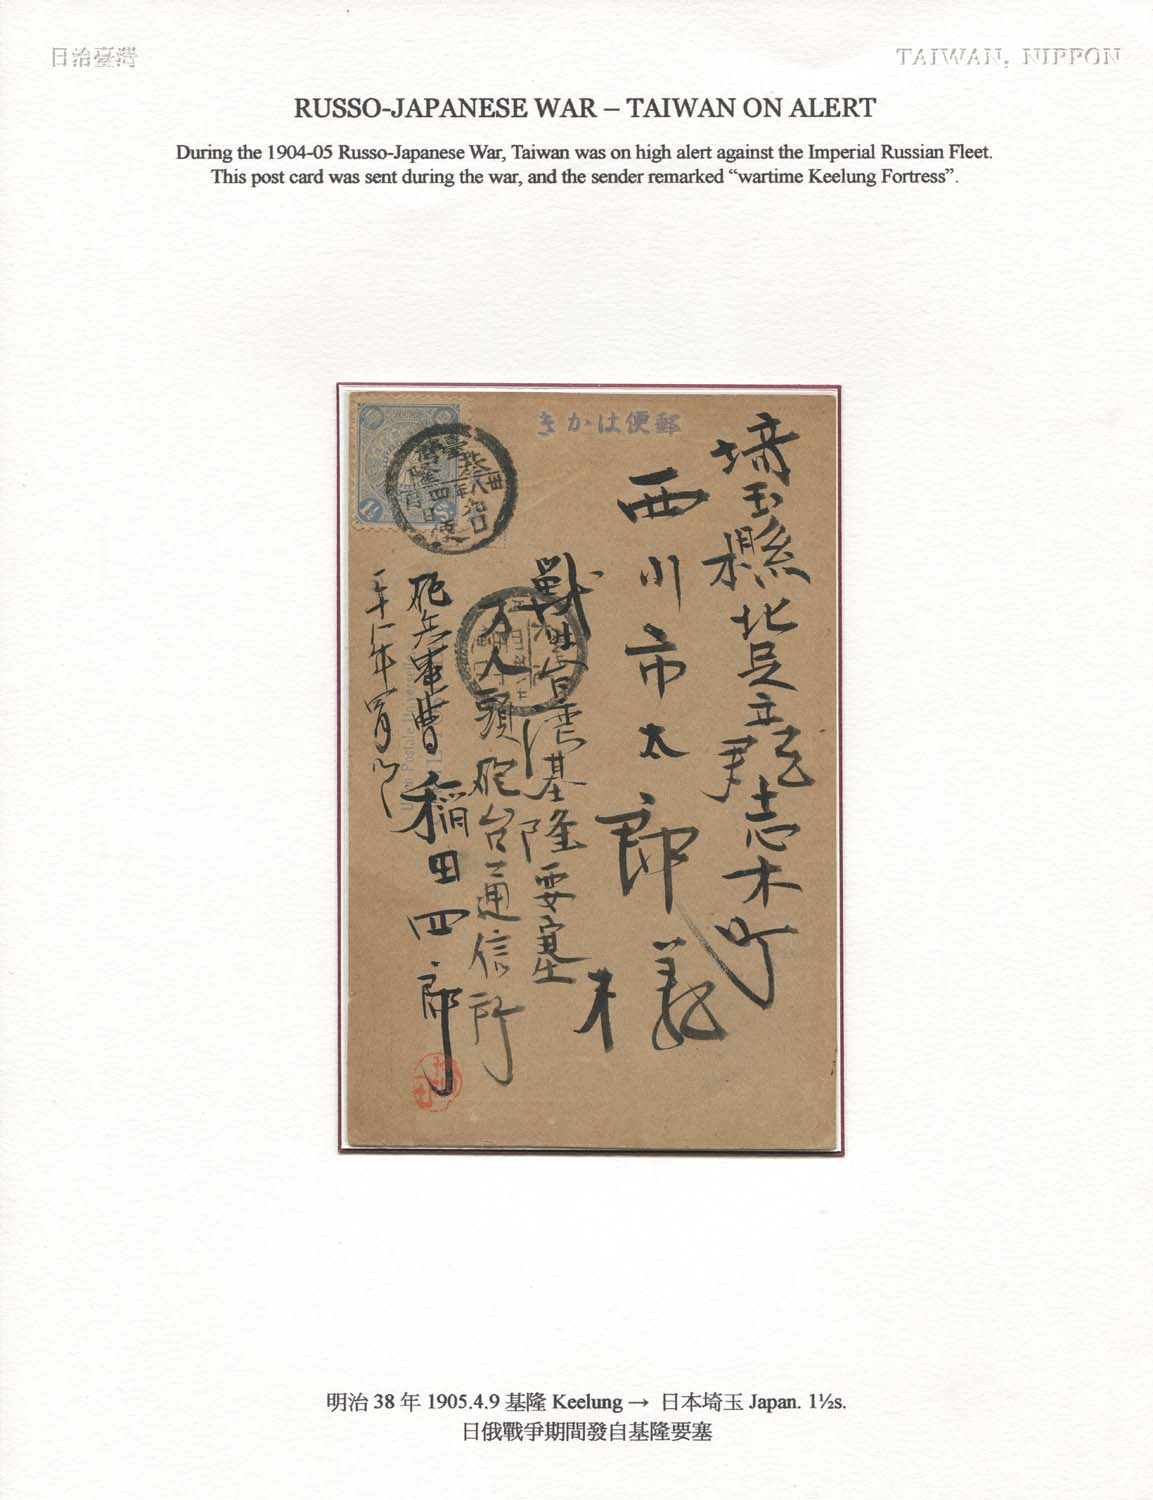 日治臺灣
TAIWAN, NIPPON
RUSSO-JAPANESE WAR – TAIWAN ON ALERT
During the 1904-05 Russo-Japanese War, Taiwan was on high alert against the Imperial Russian Fleet.
This post card was sent during the war, and the sender remarked “wartime Keelung Fortress”.
きかは便郵
埼玉縣北足立郡志木町
西川市太郎様
戰時臺湾基隆要塞
万人頭砲台通信所
砲兵軍曹 稲田四郎
明治 38 年 1905.4.9 基隆 Keelung → 日本埼玉 Japan. 1½s.
日俄戰爭期間發自基隆要塞